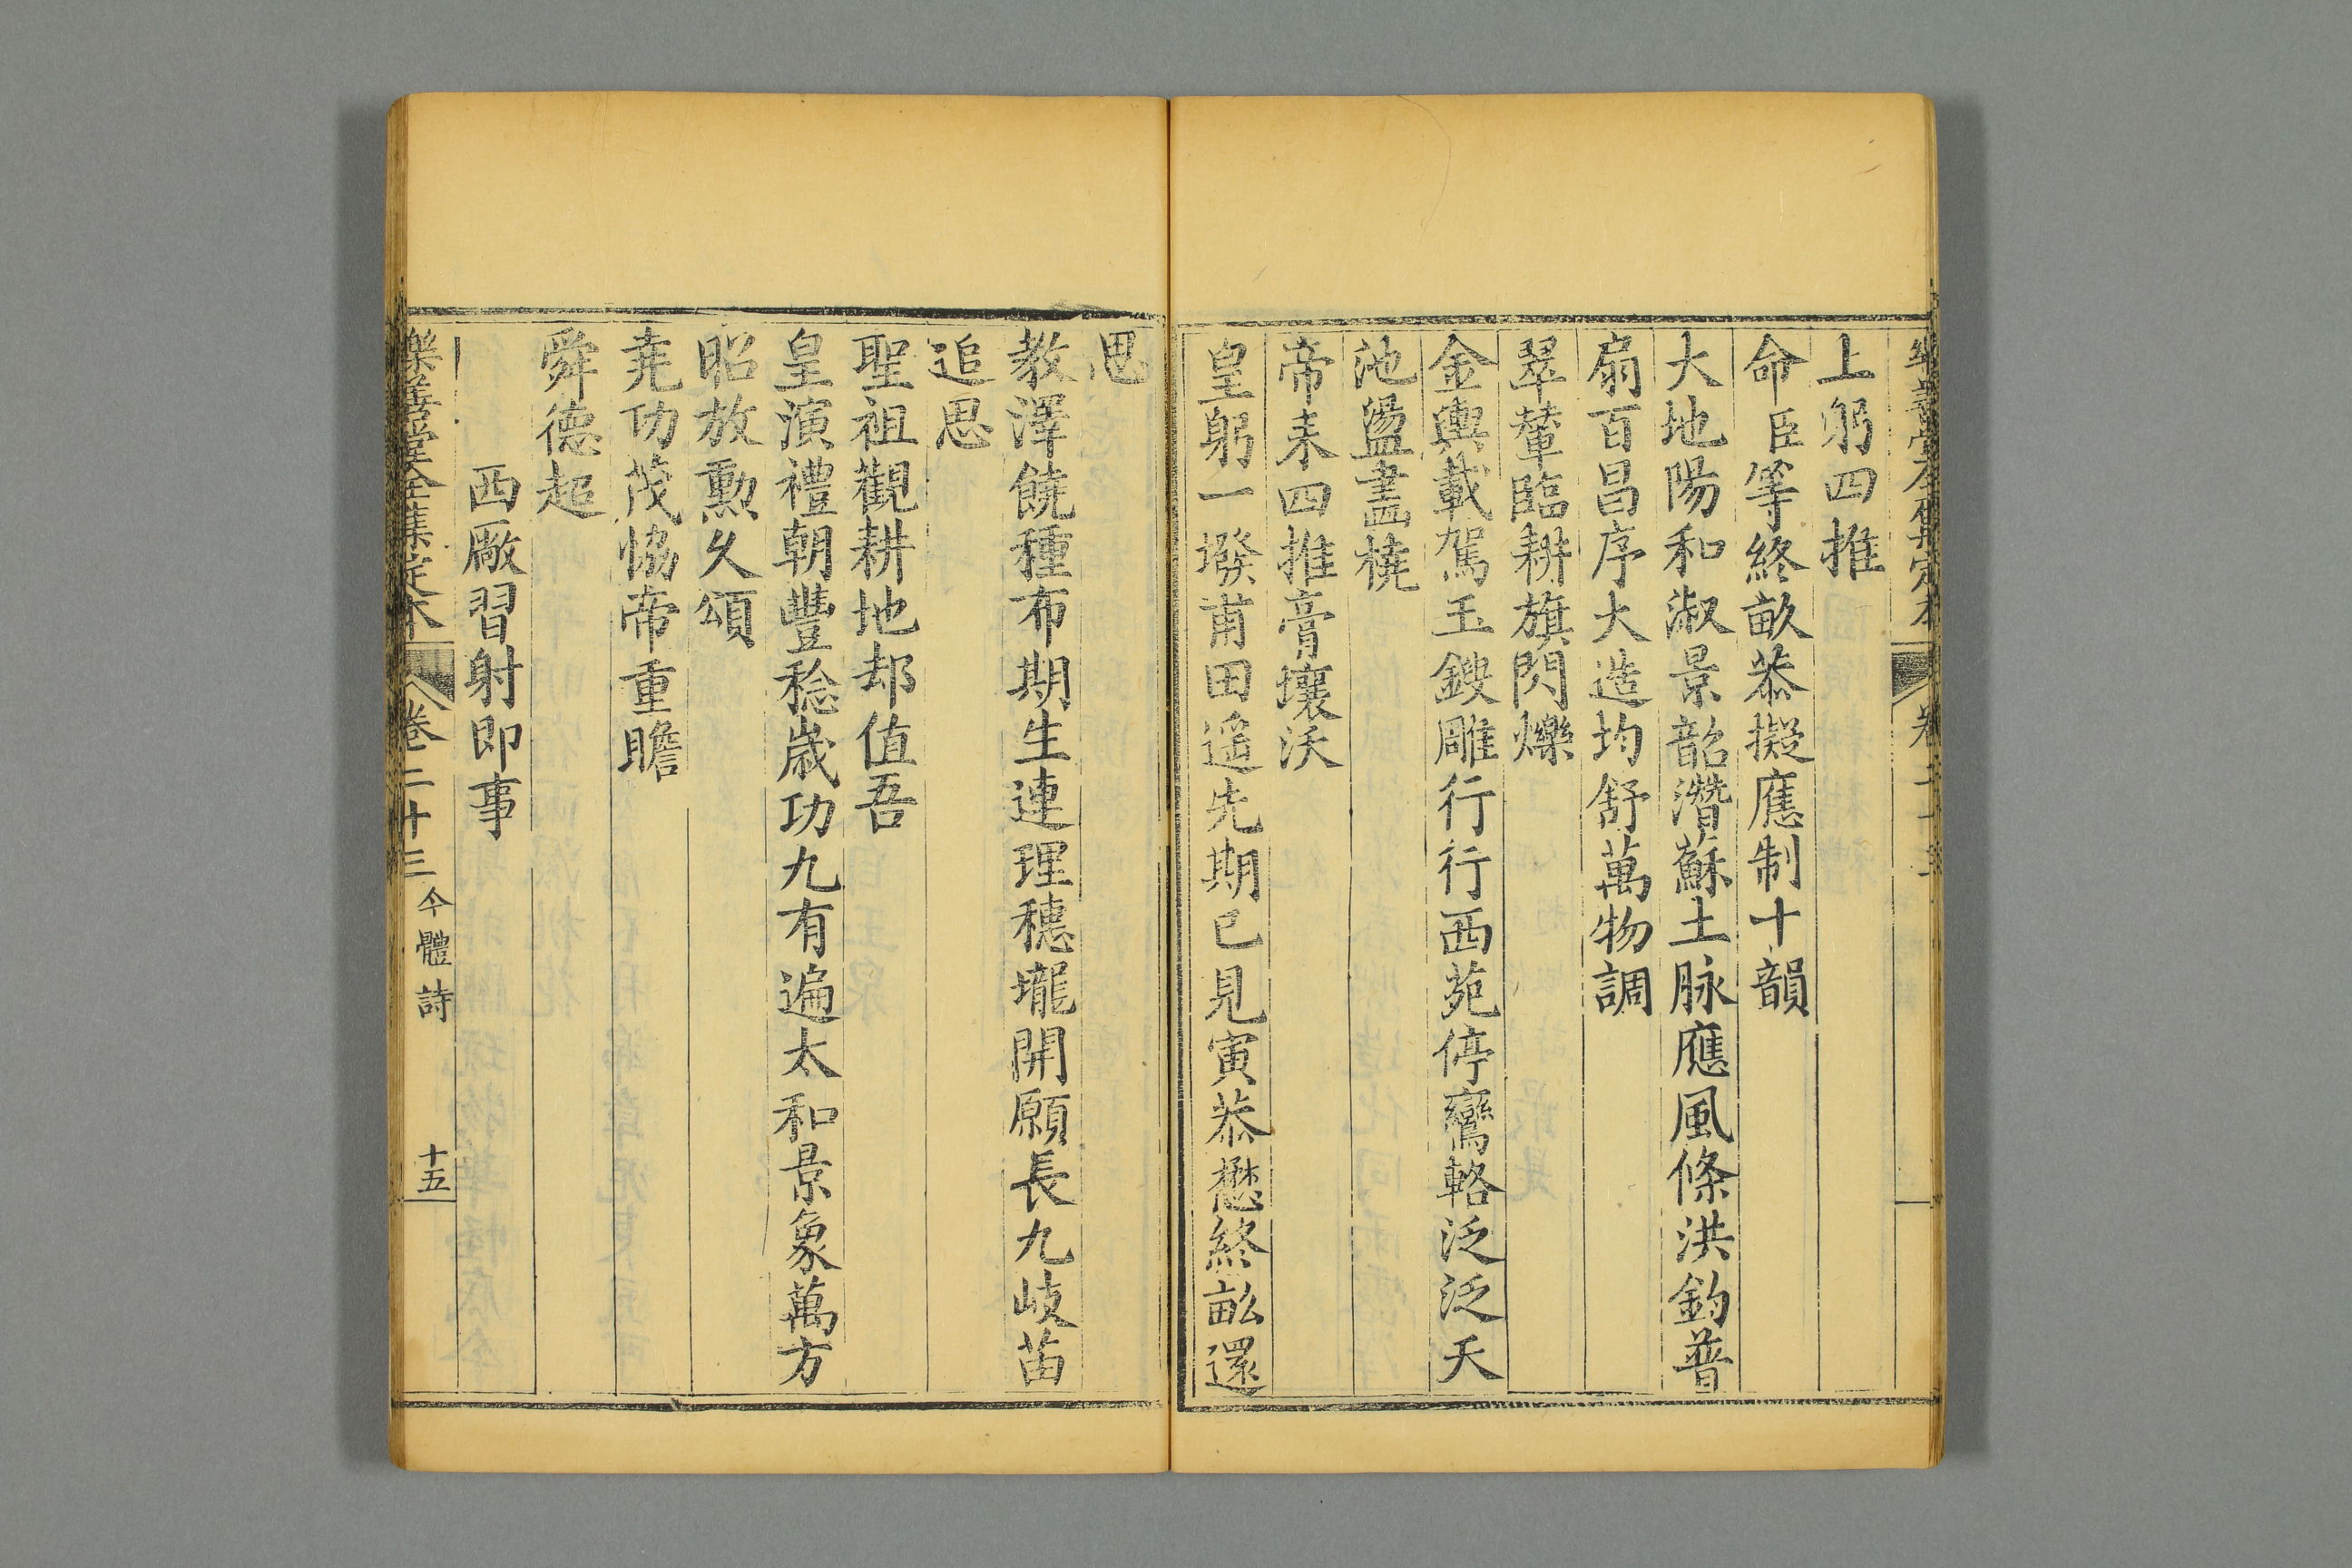 樂善堂全集定本 卷二十三
上躬四推
命臣等終畝恭擬應制十韻
大地陽和淑景韶潛蘇土脉應風條洪鈞普
扇百昌序大造均舒萬物調
翠輦臨耕旗閃爍
金輿載駕玉鍐雕行行西苑停鸞輅泛泛天
池盪畵橈
帝耒四推膏壤沃
皇躬一墢甫田遥先期已見寅恭懋終畝還
思
教澤饒種布期生連理穗壠開願長九岐苗
追思
聖祖觀耕地却值吾
皇演禮朝豐稔歲功九有遍太和景象萬方
昭放勲久頌
堯功茂恊帝重瞻
舜德超
西厰習射即事
樂善堂全集定本 卷二十三 今體詩 十五